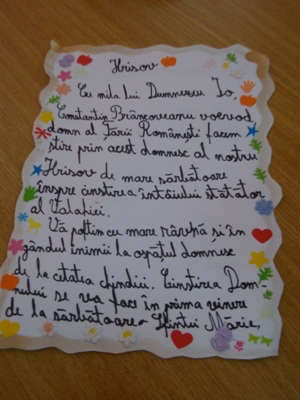 Hrisov
Cu mila lui Dumnezeu Io,
Constantin Brâncoveanu voevod
domn al Țării Românești facem
știre prin acest domnesc al nostru
Hrisov de mare sărbătoare
înspre cinstirea întâiului stătător
al Valahiei.
Vă poftim cu mare râvnă și în
gândul inimii la ospățul domnesc
de la cetatea Chindii. Cinstirea Dom-
nului se va face în prima vinere
de la sărbătoarea Sfintei Mării.